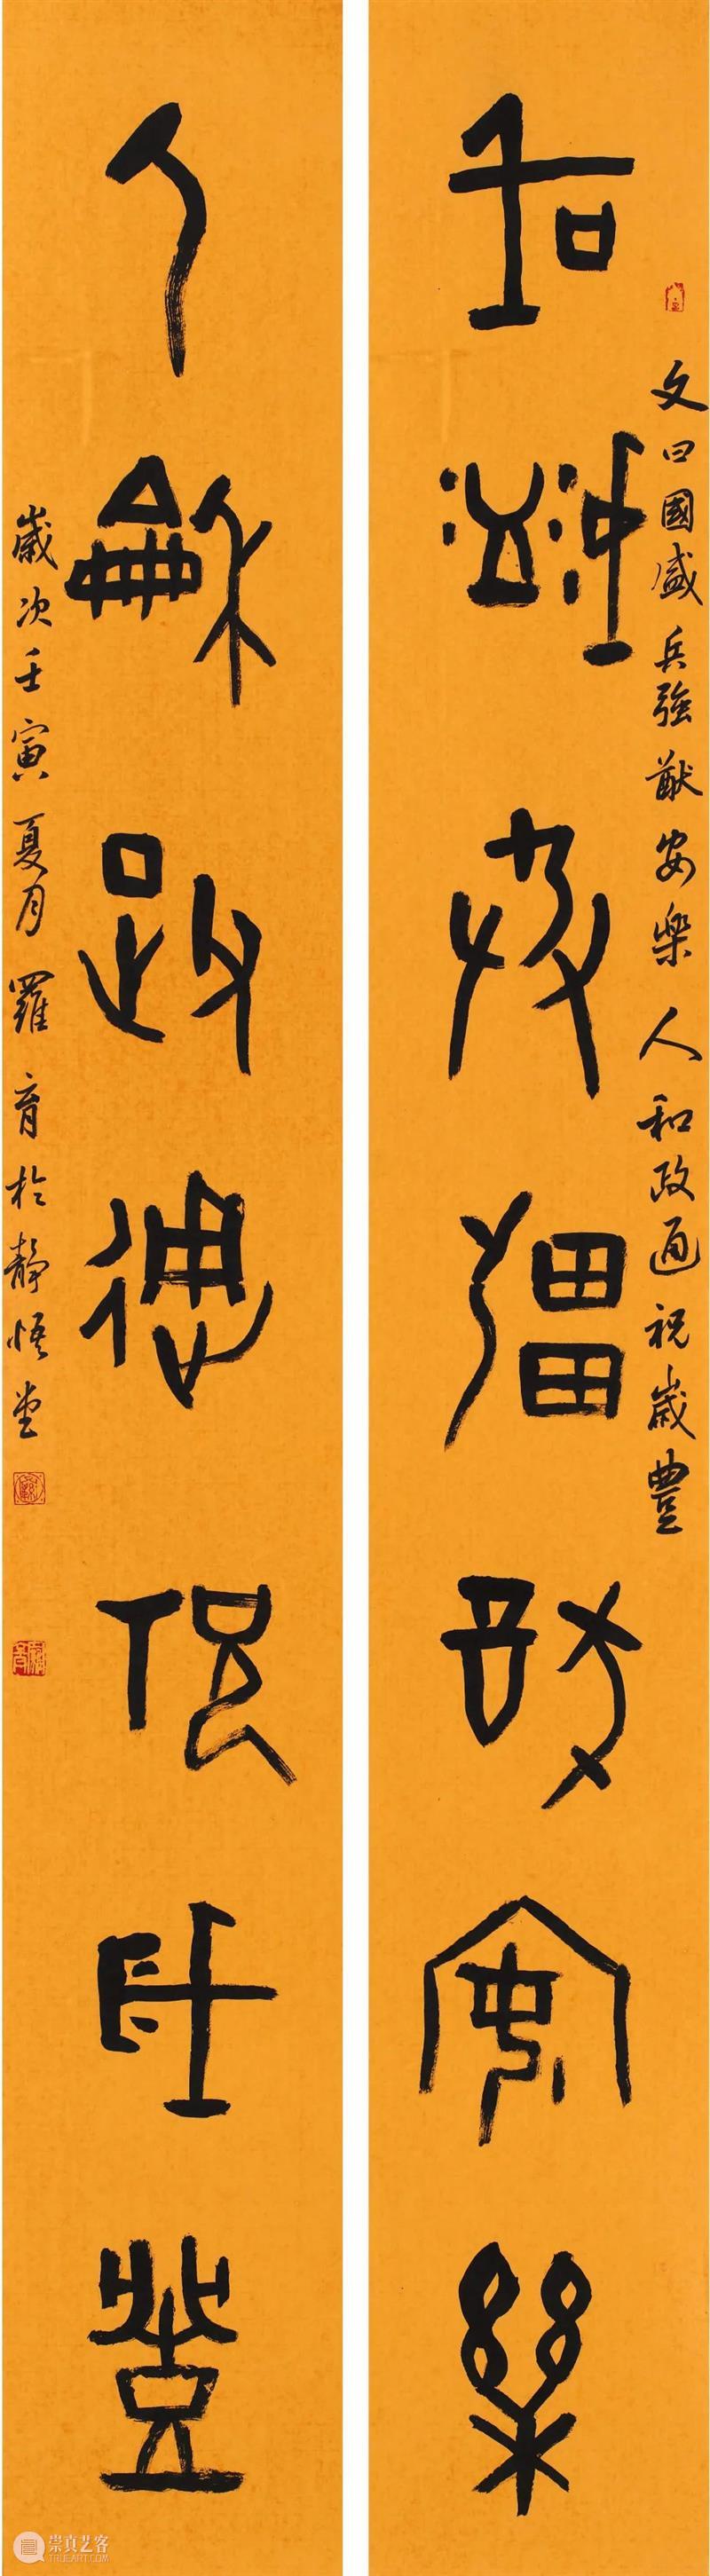 國盛兵強猷安樂
文曰國盛兵強猷安樂人和政通祝歲豐
人龢政通祝歲豐
歲次壬寅夏月羅育於靜悟堂
崇真艺客
TRUEART.COM